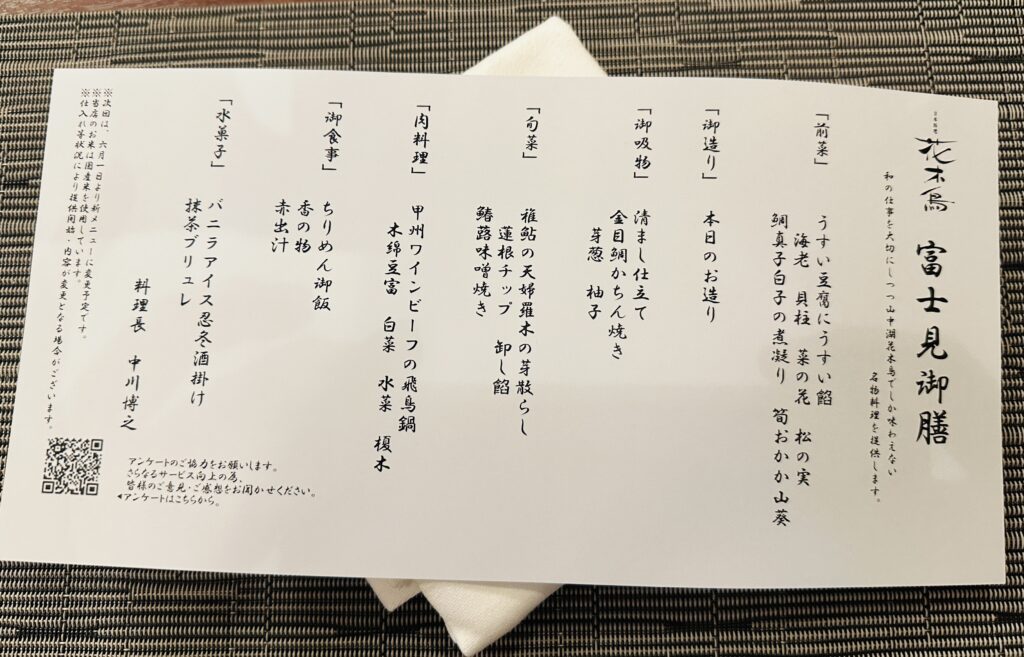 日本料理
花木鳥
富士見御膳
和の仕事を大切にしつつ山中湖花木鳥でしか味わえない
名物料理を提供します。
「前菜」
うすい豆腐にうすい餡
海老 貝柱 菜の花 松の実
鯛真子白子の煮凝り 筍おかか山葵
「御造り」
本日のお造り
「御吸物」
清まし仕立て
金目鯛かちん焼き
芽葱 柚子
「旬菜」
稚鮎の天婦羅木の芽散らし
蓮根チップ 卸し餡
鰆蕗味噌焼き
「肉料理」
甲州ワインビーフの飛鳥鍋
木綿豆富 白菜 水菜 榎木
「御食事」
ちりめん御飯
香の物
赤出汁
「水菓子」
バニラアイス忍冬酒掛け
抹茶ブリュレ
料理長 中川博之
※次回は、六月一日より新メニューに変更予定です。
※当店のお米は国産米を使用しています。
※仕入れ等状況により提供開始・内容が変更となる場合がございます。
アンケートのご協力をお願いします。
さらなるサービス向上の為、
皆様のご意見・ご感想をお聞かせください。
◀アンケートはこちらから。